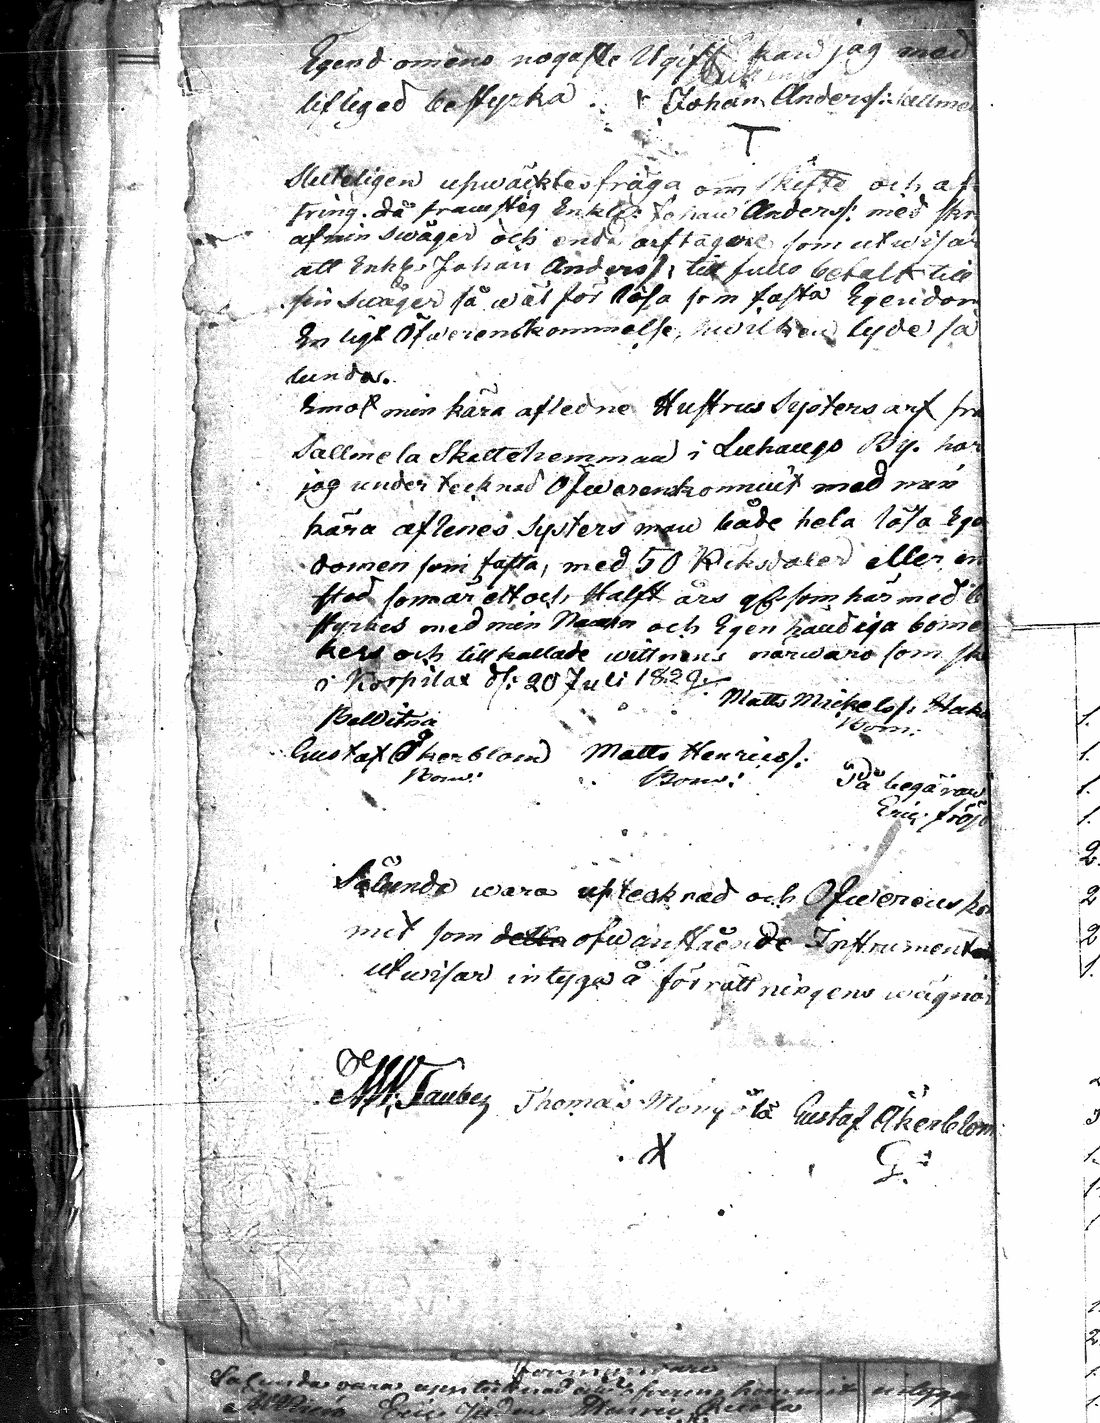 Egendomens nogaste Upgift kan jag med
lifliged bestyrka. Johan Anders: Sallme
T
Sluteligen upwäcktes fråga om skifte och af
tring. då framsteg Enkl: Johan Anders: med skr
af min swåger och enda arftagare som utwisar
att Enkl: Johan Anders: till fullo betalt till
sin swåger så wäl för lösa som fasta Egendom
Enligt Öfwerenskommelse, hwilken lyder så
lunda.
Emot min kära afledne Hustrus Systers arf fr
Sallmela Skattehemman i Luhango By. har
jag undertecknad Öfwerenskommit med min
kära aflednes Systers man både hela lösa Ege
domen som fasta, med 50 Riksdaler eller en
stod som är ett och Halft års gl som här med b
styrkes med min Namn och Egenhändiga bome
kers och tillkallade wittnens närwaro som ske
i Korpilax d: 20 Juli 1829.
Matts Mickels: Hak
Bewitna Bom:
Gustaf Åkerblom Matts Henrics:
Bom: Bom: På begäran
Eric Fröj
Sålunda wara uptecknad och Öfwerensko
mit som ofwanstående Instrument
utwisar intyga å förrättningens wägnar
Taube Thomas Gustaf Åkerblom
X G:
Förmyndare
Salunda wara upptecknad och öfwerenskommit intyga
Eric